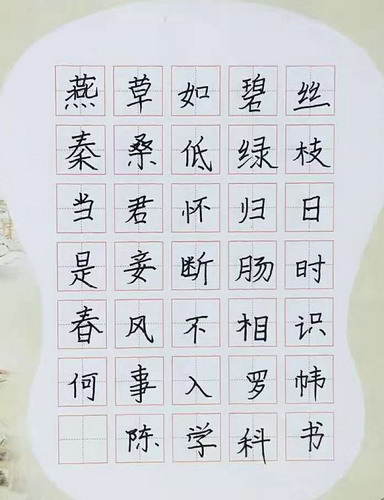 燕草如碧丝
秦桑低绿枝
当君怀归日
是妾断肠时
春风不相识
何事入罗帏
陈学科书